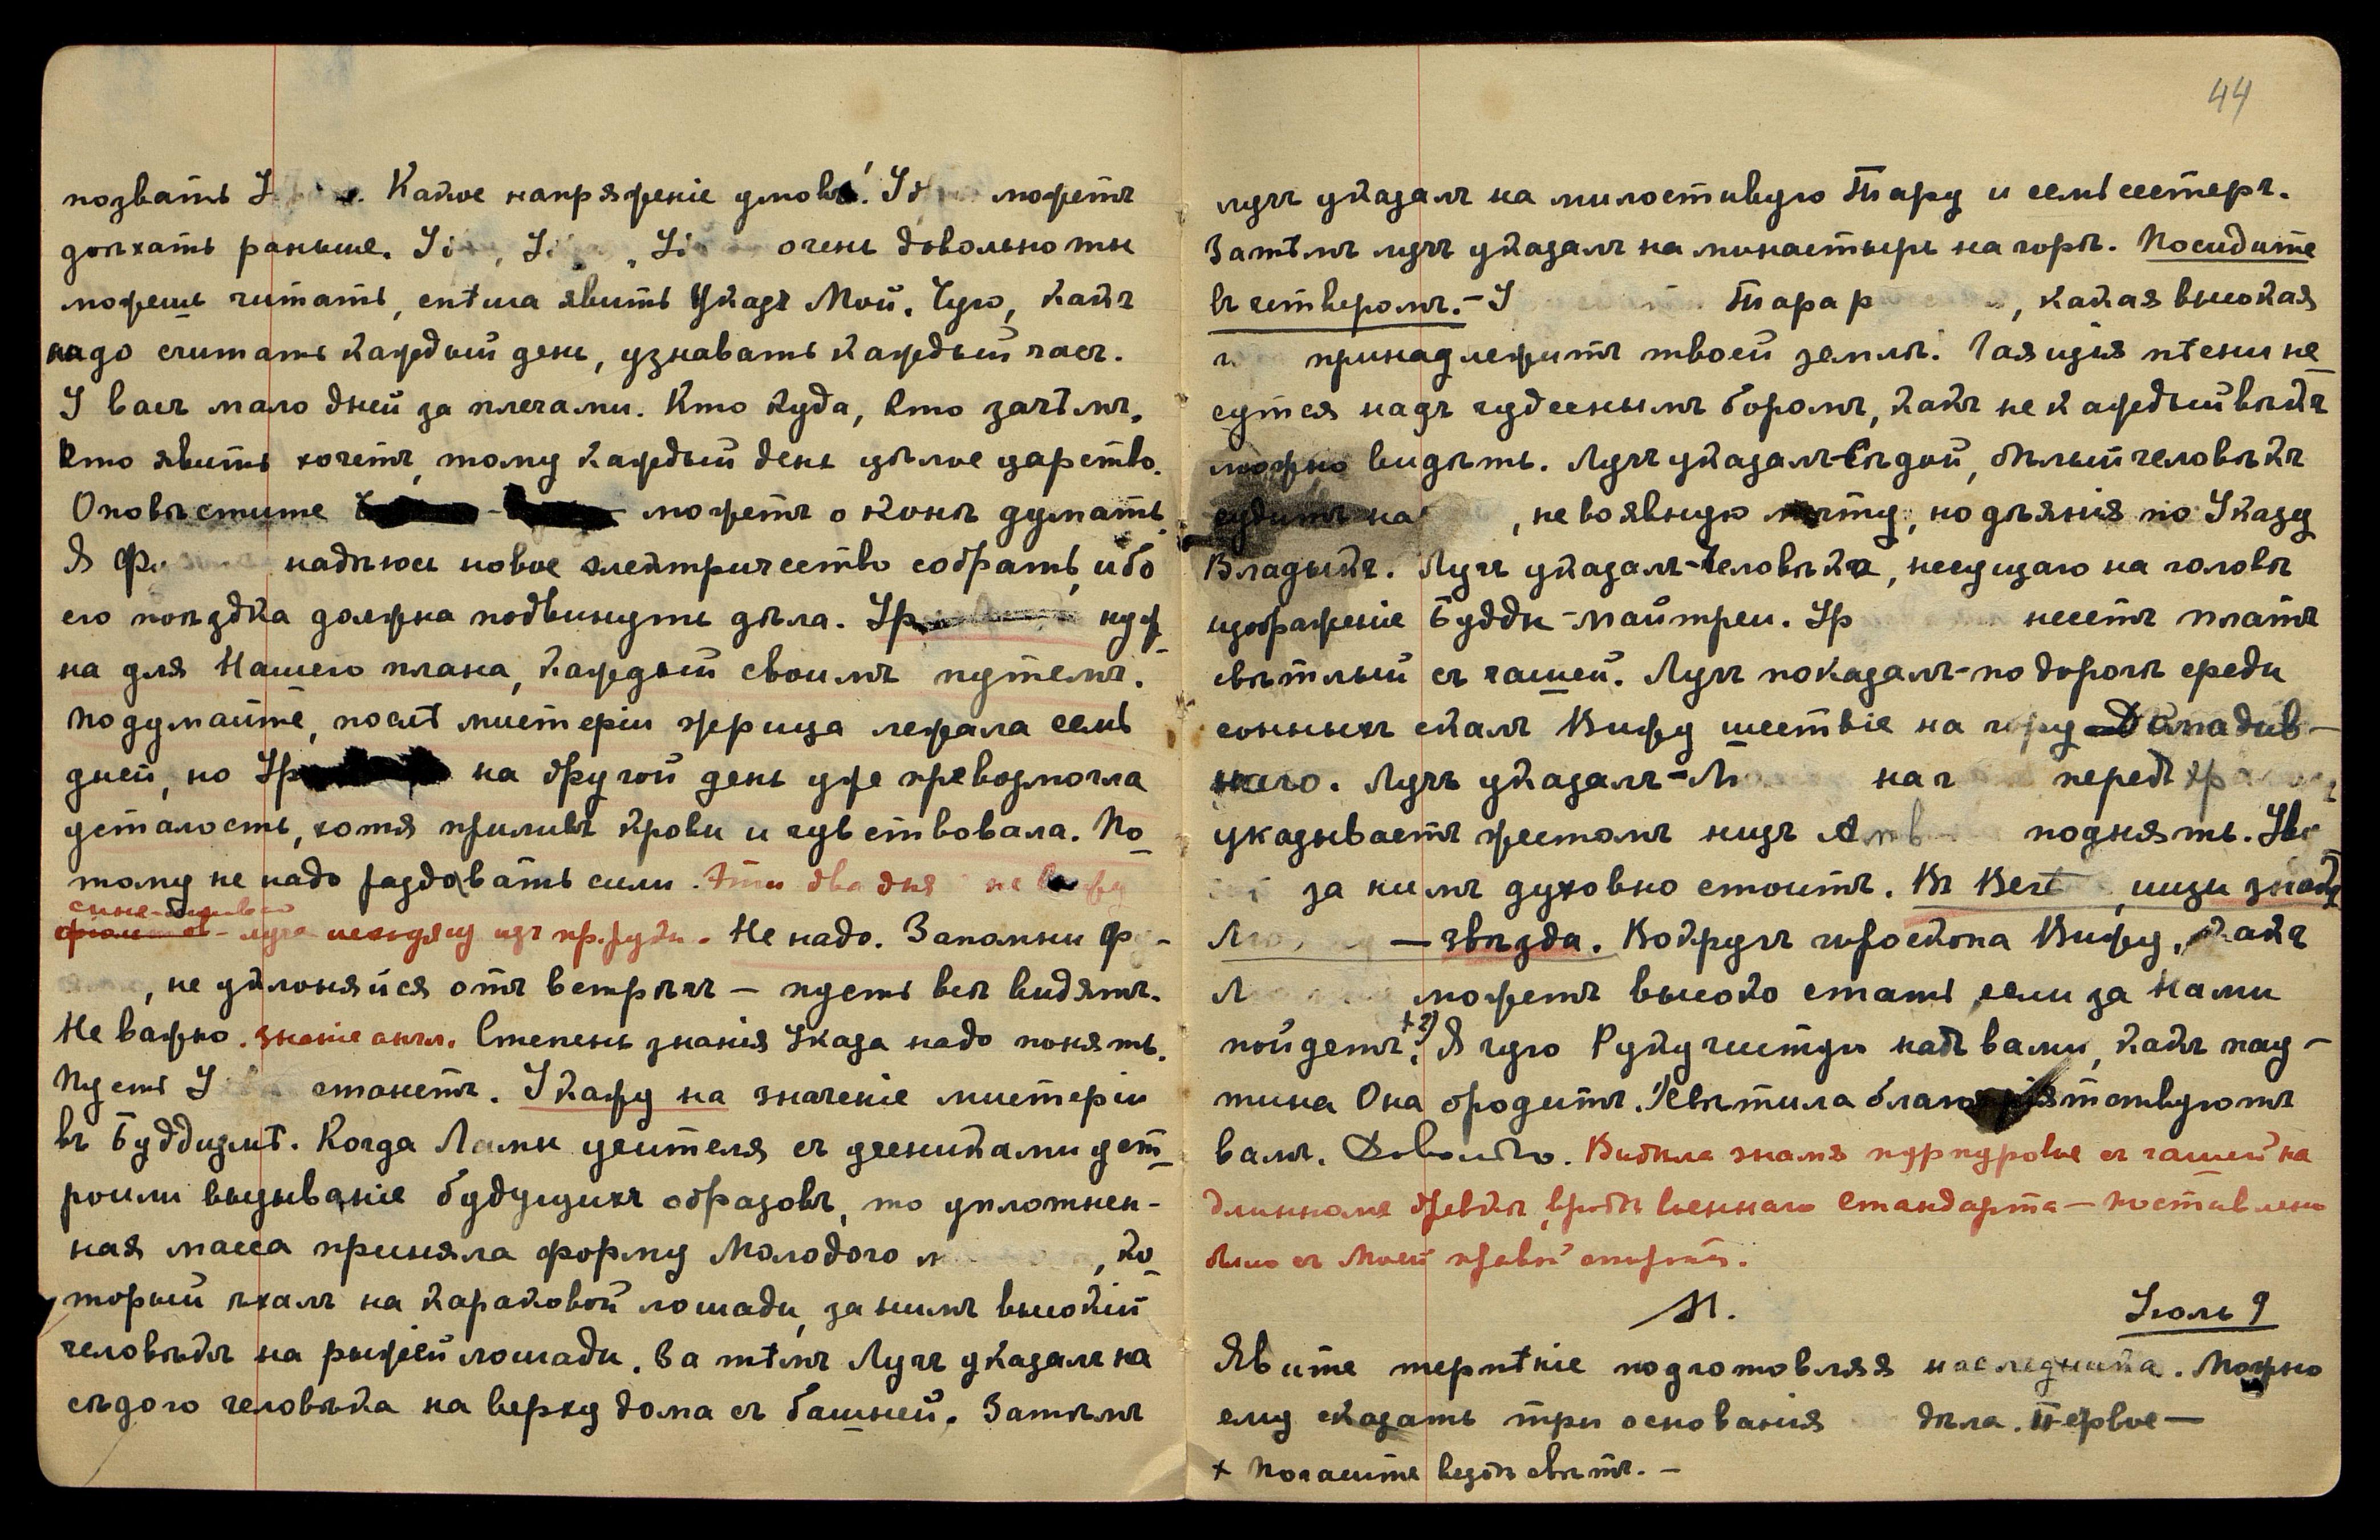 44
позвать У. Какое напряженіе умовъ! Уд можетъ
доѣхать раньше. очень довольно ты
можешь читать, спѣша явить Указъ Мой. Чую, какъ
надо считать каждый день, узнавать каждый часъ.
У васъ мало дней за плечами. Кто куда, кто зачѣмъ,
кто явить хочетъ, тому каждый день цѣлое царство.
Оповѣстите можетъ о конѣ думать
Я надѣюсь новое электричество собрать, ибо
его поѣздка должна подвинуть дѣла. Ур нуж-
на для Нашего плана, каждый своимъ путемъ.
Подумайте, послѣ мистеріи жрица лежала семь
дней, но Ур на другой день уже превозмогла
усталость, хотя приливъ крови и чувствовала. По-
тому не надо раздавать силы. Эти два дня не вижу
сине-
луча исходящ изъ пр. руки. Не надо. Запомни Ф-
, не уклоняйся отъ встрѣчъ — пусть всѣ видятъ.
Не важно. знаніе англ. Степень знанія Указа надо понять.
Пусть У станетъ. Укажу на значеніе мистеріи
въ Буддизмѣ. Когда Ламы учителя съ учениками уст-
роили вызываніе будущихъ образовъ, то уплотнен-
ная масса приняла форму Молодого, ко-
торый ѣхалъ на караковой лошади, за нимъ высокій
человѣкъ на рыжей лошади. Затѣмъ Лучъ указалъ на
сѣдого человѣка на верху дома съ башней. Затѣмъ
лучъ указалъ на милостивую Тару и семь сестеръ.
Затѣмъ лучъ указалъ на монастырь на горѣ. Посидите
въ четверомъ. - У Тара р, какая высокая
принадлежитъ твоей землѣ. Чаящія пѣсни не-
сутся надъ чудеснымъ боромъ, какъ не каждый вѣкъ
можно видѣть. Лучъ указалъ - Сѣдой, бѣлый человѣкъ
судитъ на, не воявную мечту, но дѣянія по Указу
Владыкъ. Лучъ указалъ - человѣка, несущаго на головѣ
изображеніе Будды - Майтреи. Ур несетъ платъ
свѣтлый съ чашей. Лучъ показалъ - по дорогѣ среди
сонныхъ скалъ Вижу шествіе на гору
наго. Лучъ указалъ - Л на передъ
указываетъ жестомъ низъ поднять.
за нимъ духовно стоитъ. ищи звѣзду
Л — звѣзда. Вокругъ гороскопа Вижу, какъ
Л можетъ высоко стать, если за Нами
пойдетъ. +2) Я чую Руку чистую надъ вами, какъ пау-
тина Она бродитъ. Свѣтила благопріятствуютъ
вамъ. Довольно. Видѣла знамя пурпуровое съ чашей на
длинномъ древкѣ, вродѣ военнаго стандарта — поставлено
было съ Моей правой стороны.
М. Іюль 9
Явите терпѣніе подготовляя наследника. Можно
ему сказать три основанія дѣла. Первое —
+ Погасите вездѣ свѣтъ. —